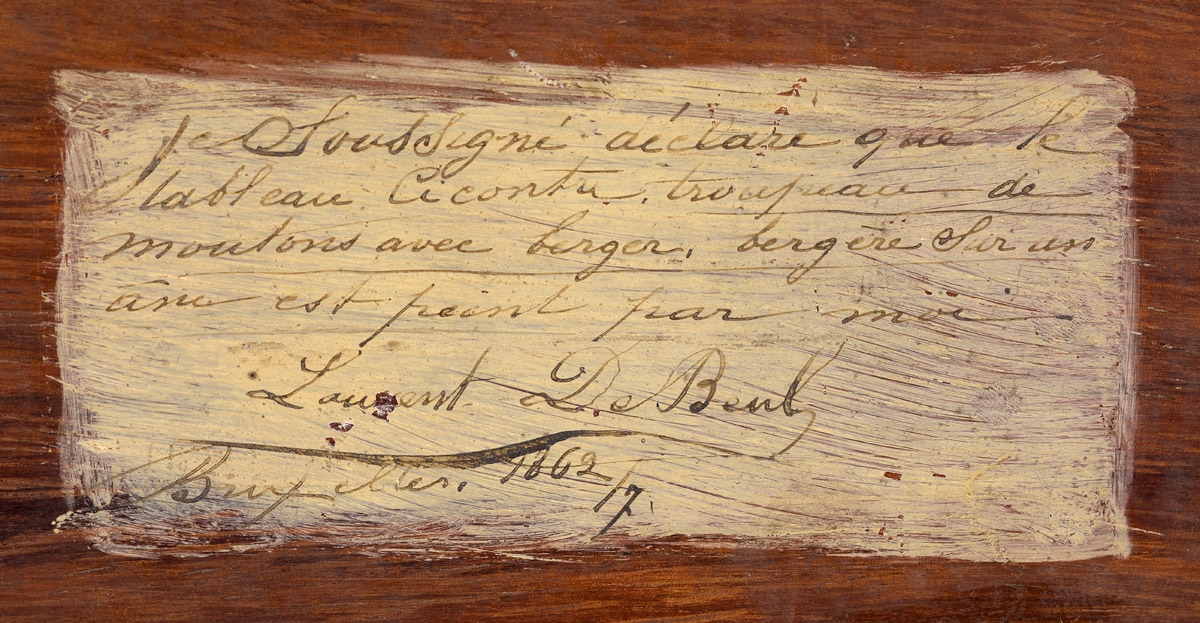 Je Soussigné déclare que le
tableau Cicontre, troupeau de
moutons avec berger, bergère Sur un
âne est peint par moi
Laurent De Beul
Bruxelles. 1862/7.